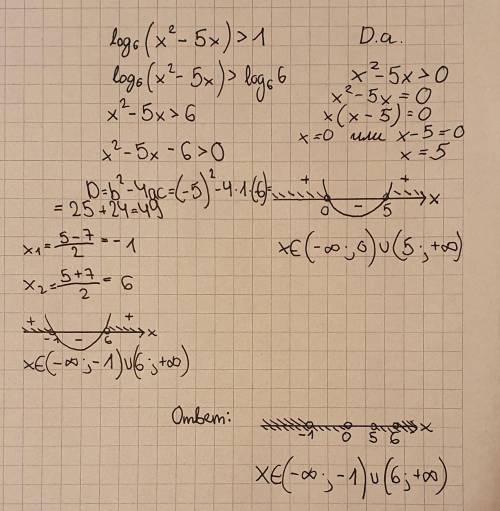 log₆(x² - 5x) > 1
log₆(x² - 5x) > log₆6
x² - 5x > 6
x² - 5x - 6 > 0
D = b² - 4ac = (-5)² - 4·1·(6) =
= 25 + 24 = 49
x₁ = (5-7)/2 = -1
x₂ = (5+7)/2 = 6
+ - +
-1 6 x
x∈(-∞; -1)∪(6; +∞)
D.a.
x² - 5x > 0
x² - 5x = 0
x(x - 5) = 0
x = 0 или x - 5 = 0
x = 5
+ - +
0 5 x
x∈(-∞; 0)∪(5; +∞)
Ответ:
-1 0 5 6 x
X∈(-∞; -1)∪(6; +∞)